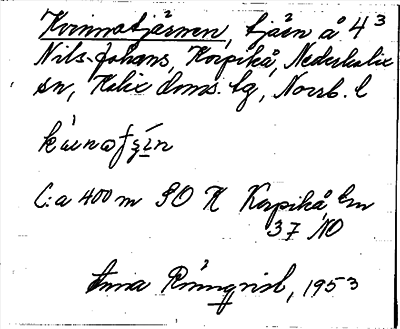 Kvinnotjärnen, tjärn å 4³
Nils-Johans, Korpikå, Nederkalix
sn, Kalix doms. tg, Norrb. l
C:a 400 m SO K Korpikå, Gn
37 NO
Anna Rönnqvist, 1953